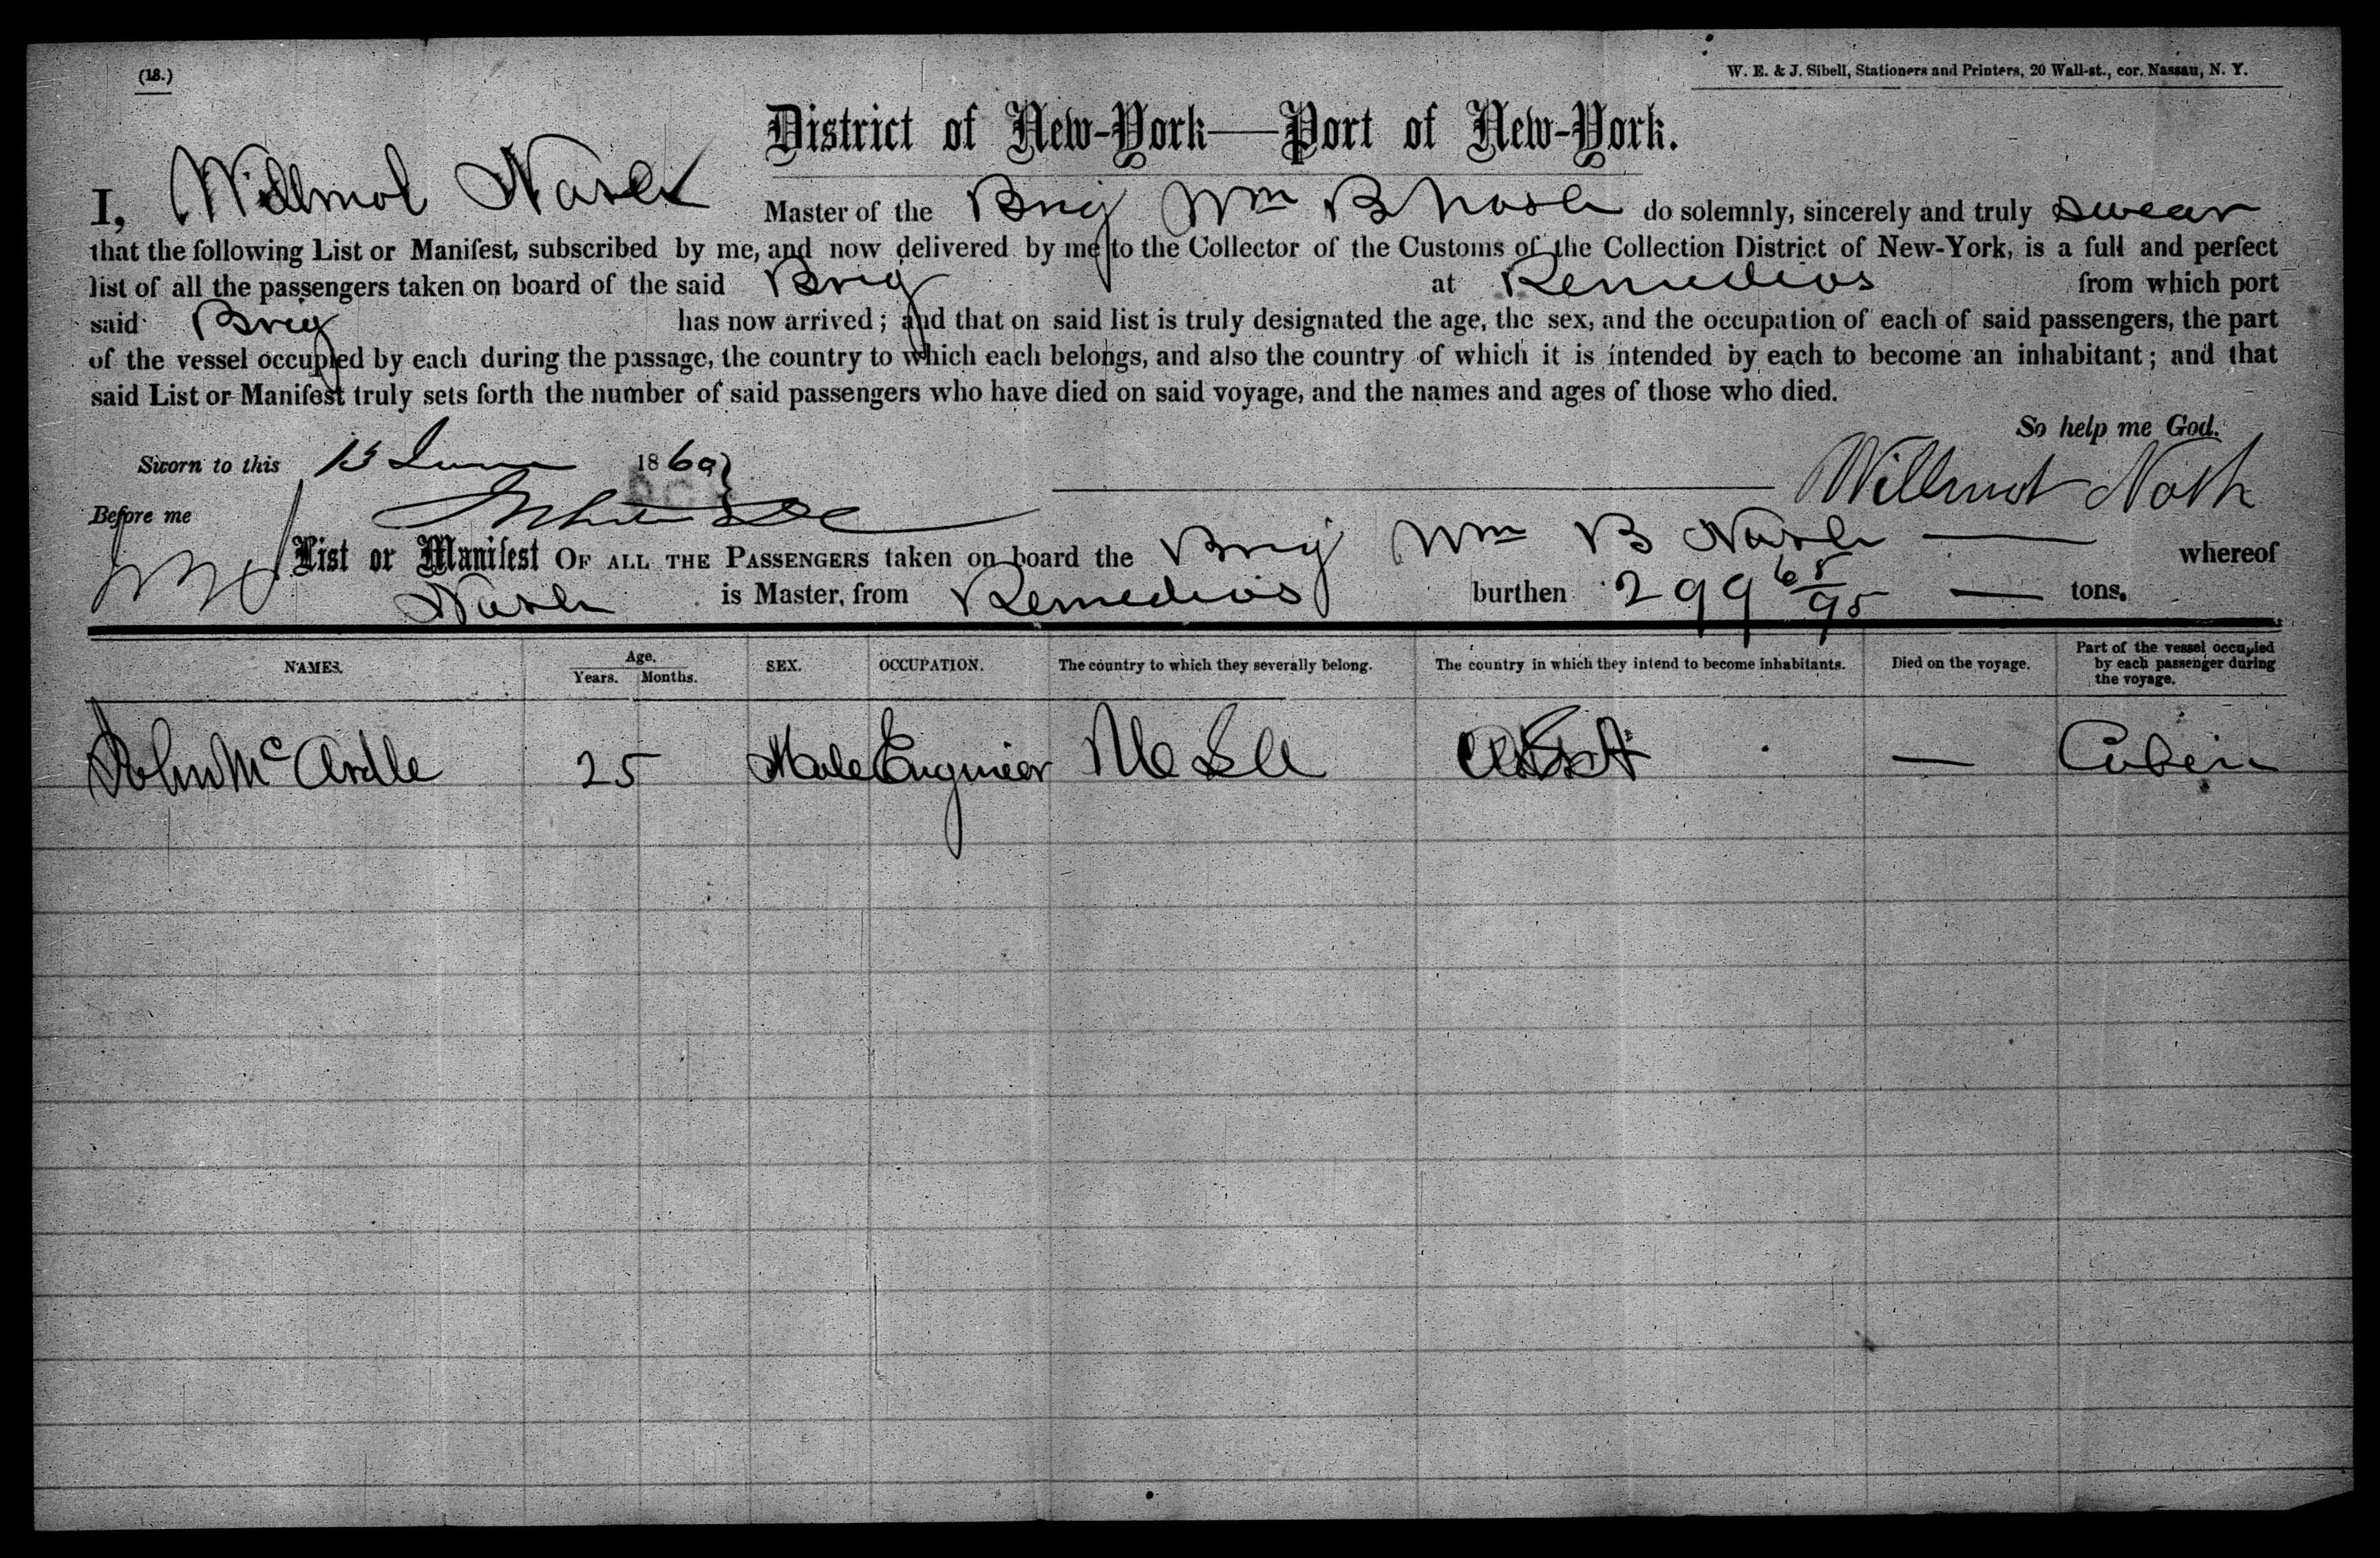 (18.)
W. E. & J. Sibell, Stationers and Printers, 20 Wall-st., cor. Nassau, N. Y.
District of New-York—Port of New-York.
I, Willmot Nash Master of the Brig Wm B Nash do solemnly, sincerely and truly swear
that the following List or Manifest, subscribed by me, and now delivered by me to the Collector of the Customs of the Collection District of New-York, is a full and perfect
list of all the passengers taken on board of the said Brig at Remedios from which port
said Brig has now arrived; and that on said list is truly designated the age, the sex, and the occupation of each of said passengers, the part
of the vessel occupied by each during the passage, the country to which each belongs, and also the country of which it is intended by each to become an inhabitant; and that
said List or Manifest truly sets forth the number of said passengers who have died on said voyage, and the names and ages of those who died.
So help me God.
Sworn to this 15 June 1869 Willmot Nash
Before me
List or Manifest OF ALL THE PASSENGERS taken on board the Brig Wm B Nash — whereof
Nash is Master, from Remedios burthen 299 65/95 — tons.
NAMES. Age. Years. Months. SEX. OCCUPATION. The country to which they severally belong. The country in which they intend to become inhabitants. Died on the voyage. Part of the vessel occupied by each passenger during the voyage.
John McArdle 25 Male Engineer — Cabin